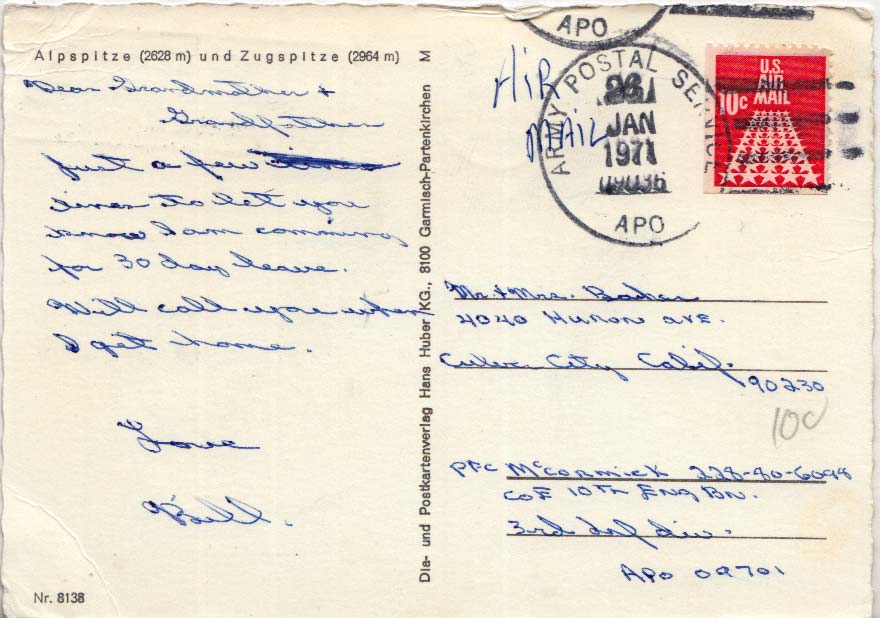 APO
Alpspitze (2628 m) und Zugspitze (2964 m) M
Dear Grandmother +
Grandfather
Just a few
lines to let you
know I am comming
for 30 day leave.
Will call you when
I get home.
Love
Bill.
Nr. 8138
Dia- und Postkartenverlag Hans Huber/KG., 8100 Garmisch-Partenkirchen
AIR
MAIL
ARMY POSTAL SERVICE
26
JAN
1971
09036
APO
U.S.
AIR
MAIL
10c
Mr + Mrs.
4040 Huron ave.
Culver City Calif.
90230
10c
PFC McCormick 228-80-6098
Co E 10th Eng Bn.
3rd Inf div.
APO 09701